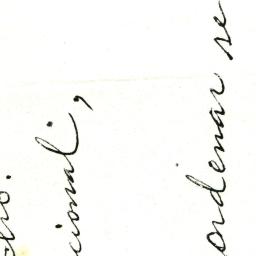 cional,
ordenar se